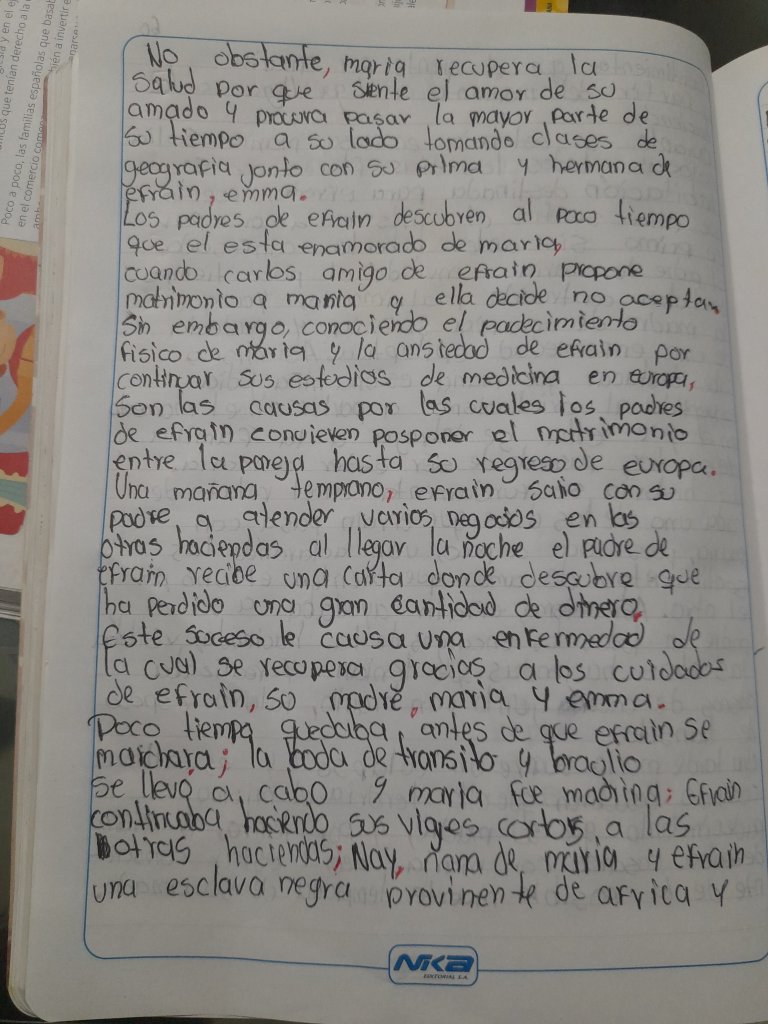 Poco a poco, las familias españolas que basab
en el comercio
No obstante, maria recupera la
salud por que siente el amor de su
amado y procura pasar la mayor parte de
su tiempo a su lado tomando clases de
geografia, junto con su prima y hermana de
efrain, emma.
Los padres de efrain descubren al poco tiempo
que el esta enamorado de maria,
cuando carlos amigo de efrain propone
matrimonio a maria y ella decide no aceptar.
Sin embargo, conociendo el padecimiento
fisico de maria y la ansiedad de efrain por
continuar sus estudios de medicina en europa,
son las causas por las cuales los padres
de efrain convieven posponer el matrimonio
entre la pareja hasta su regreso de europa.
Una mañana temprano, efrain salio con su
padre a atender varios negocios en las
otras haciendas al llegar la noche el padre de
efrain recibe una carta donde descubre que
ha perdido una gran cantidad de dinero.
Este suceso le causa una enfermedad de
la cual se recupera gracias a los cuidados
de efrain, su madre, maria y emma.
Poco tiempo quedaba, antes de que efrain se
marchara; la boda de transito y braulio
se llevó a cabo y maria fue madrina; Efrain
continuaba haciendo sus viges cortos a las
otras haciendas; Nay, nana de maria y efrain
una esclava negra provinente de africa y
NIKA
EDITORIAL S.A.